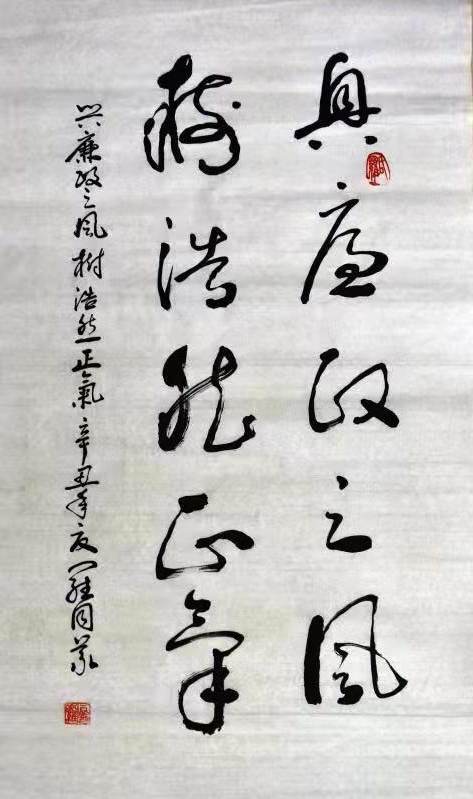 興廉政之風
樹浩然正氣
兴廉政之風樹浩然正氣辛丑年夏羅同兼